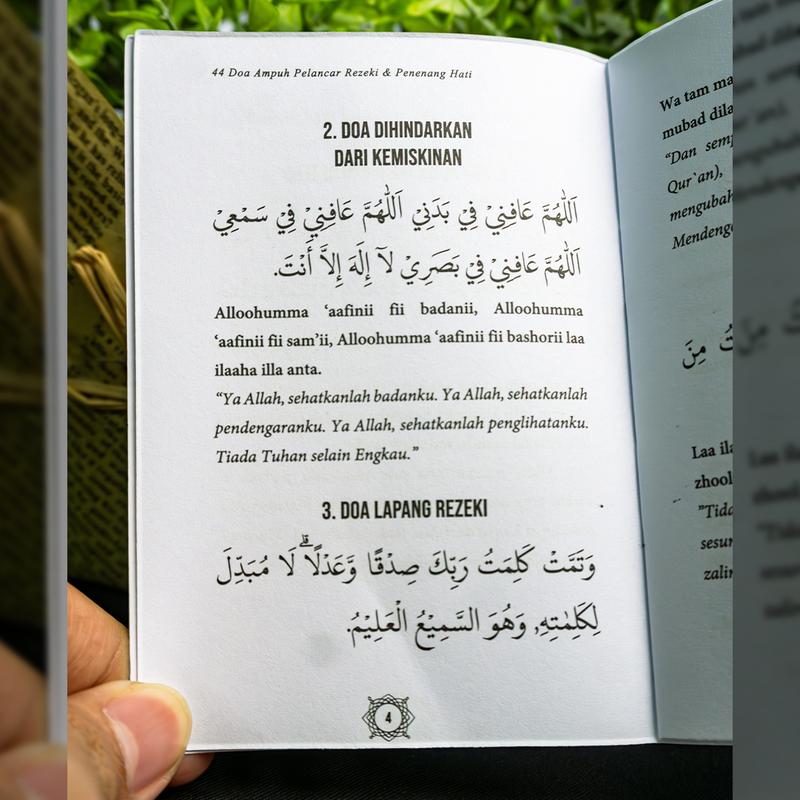 44 Doa Ampuh Pelancar Rezeki & Penenang Hati
2. DOA DIHINDARKAN
DARI KEMISKINAN
اَللّٰهُمَّ عَافِنِيْ فِيْ بَدَنِيْ اَللّٰهُمَّ عَافِنِيْ فِيْ سَمْعِيْ
اَللّٰهُمَّ عَافِنِيْ فِيْ بَصَرِيْ لَآ إِلَهَ إِلاَّ أَنْتَ.
Alloohumma ‘aafinii fii badanii, Alloohumma
‘aafinii fii sam’ii, Alloohumma ‘aafinii fii bashorii laa
ilaaha illa anta.
“Ya Allah, sehatkanlah badanku. Ya Allah, sehatkanlah
pendengaranku. Ya Allah, sehatkanlah penglihatanku.
Tiada Tuhan selain Engkau.”
3. DOA LAPANG REZEKI
وَتَمَّتْ كَلِمَتُ رَبِّكَ صِدْقًا وَّعَدْلًاۗ لَا مُبَدِّلَ
لِكَلِمٰتِهٖ, وَهُوَ السَّمِيْعُ الْعَلِيْمُ.
4
Wa tam
mubad
“Dan
Qur`an),
mengubah
Mendeng
مِنَ
Laa
zhool
”Tida
sesu
zalim